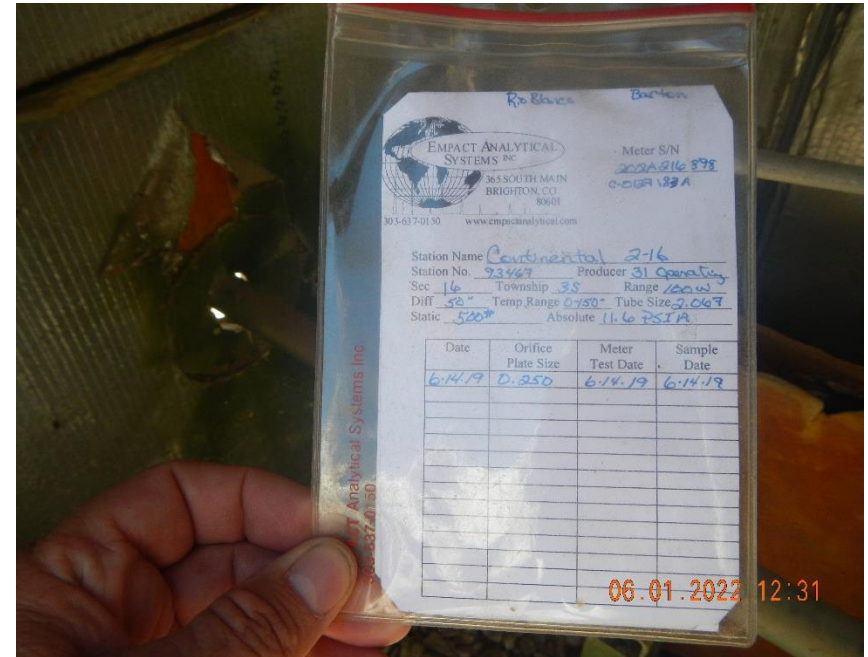 Rio Blanco Barton
EMPACT ANALYTICAL
SYSTEMS INC
365 SOUTH MAIN
BRIGHTON, CO
80601
303-637-0150 www.empactanalytical.com
Meter S/N
202A216 898
Station Name Continental 2-16
Station No. 93467 Producer 31 Operating
Sec 16 Township 3S Range 100W
Diff 50" Temp Range 0-150° Tube Size 2.067
Static 500# Absolute 11.6 PSIA
Date Orifice Plate Size Meter Test Date Sample Date
6-14-19 0.250 6-14-19 6-14-19
Analytical Systems Inc
637-0150
06.01.2022 12:31